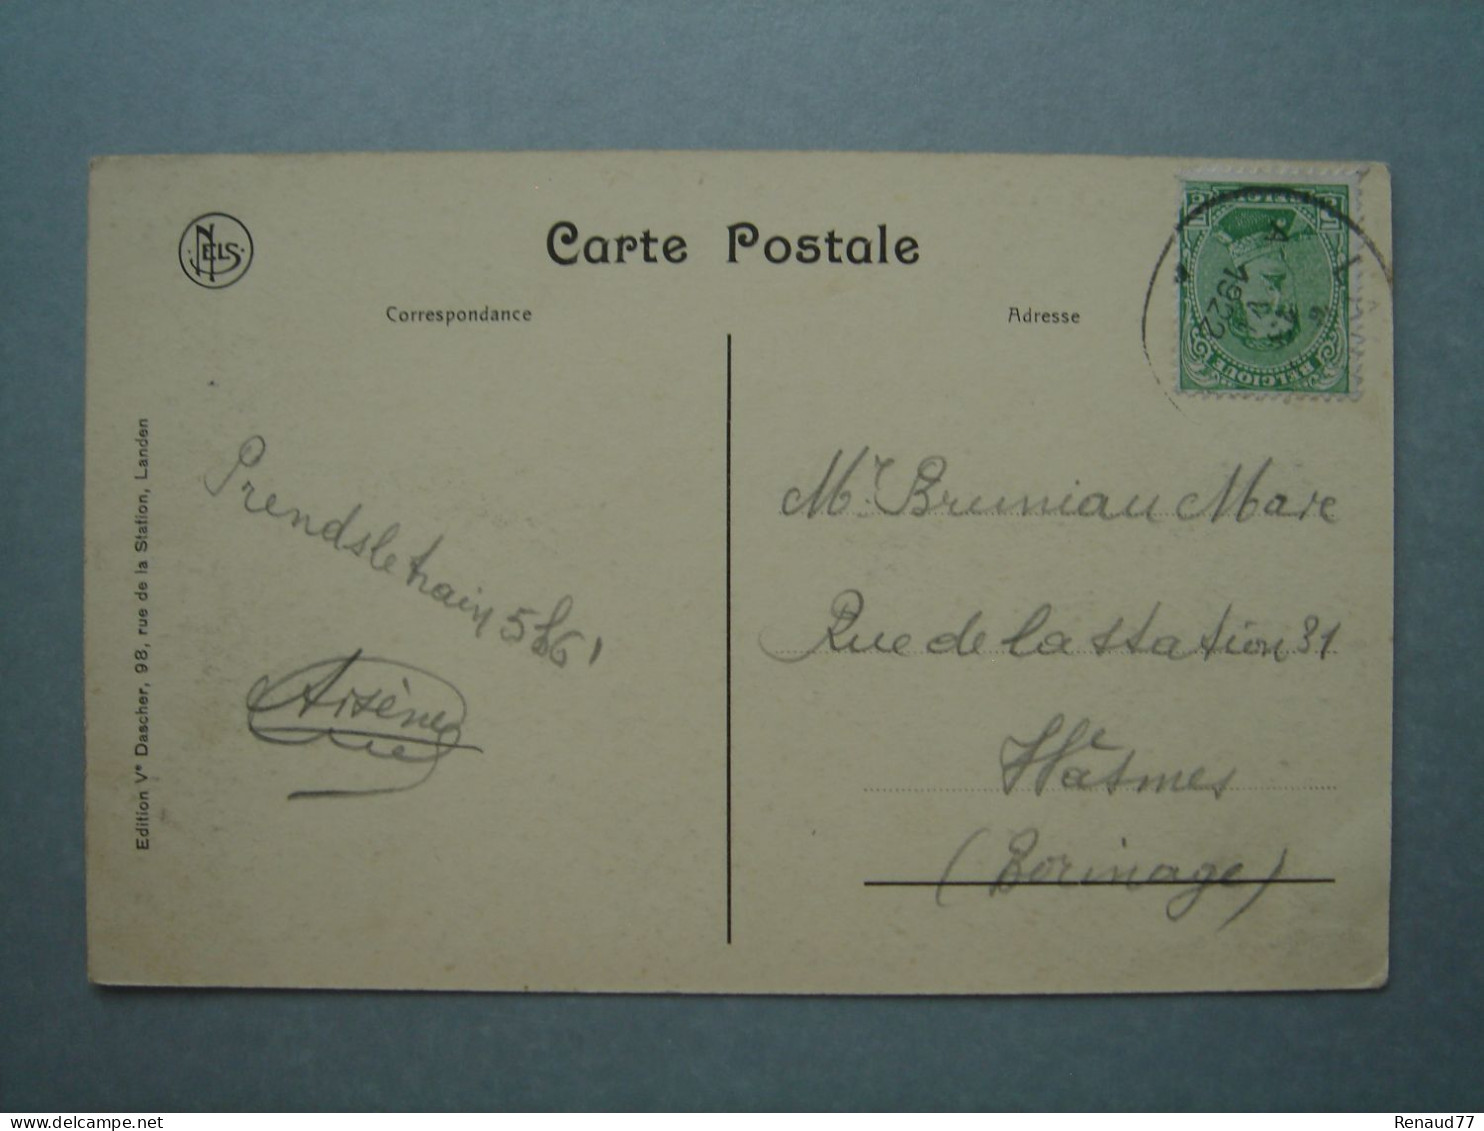 NELS
Carte Postale
Correspondance
Adresse
BELGIQUE
1922
Edition Ve Dascher, 98, rue de la Station, Landen
Prends le train 5h6'
Arsène
Mr. Bruniau Marc
Rue de la Station 31
Wasmes
(Borinage)
Renaud77